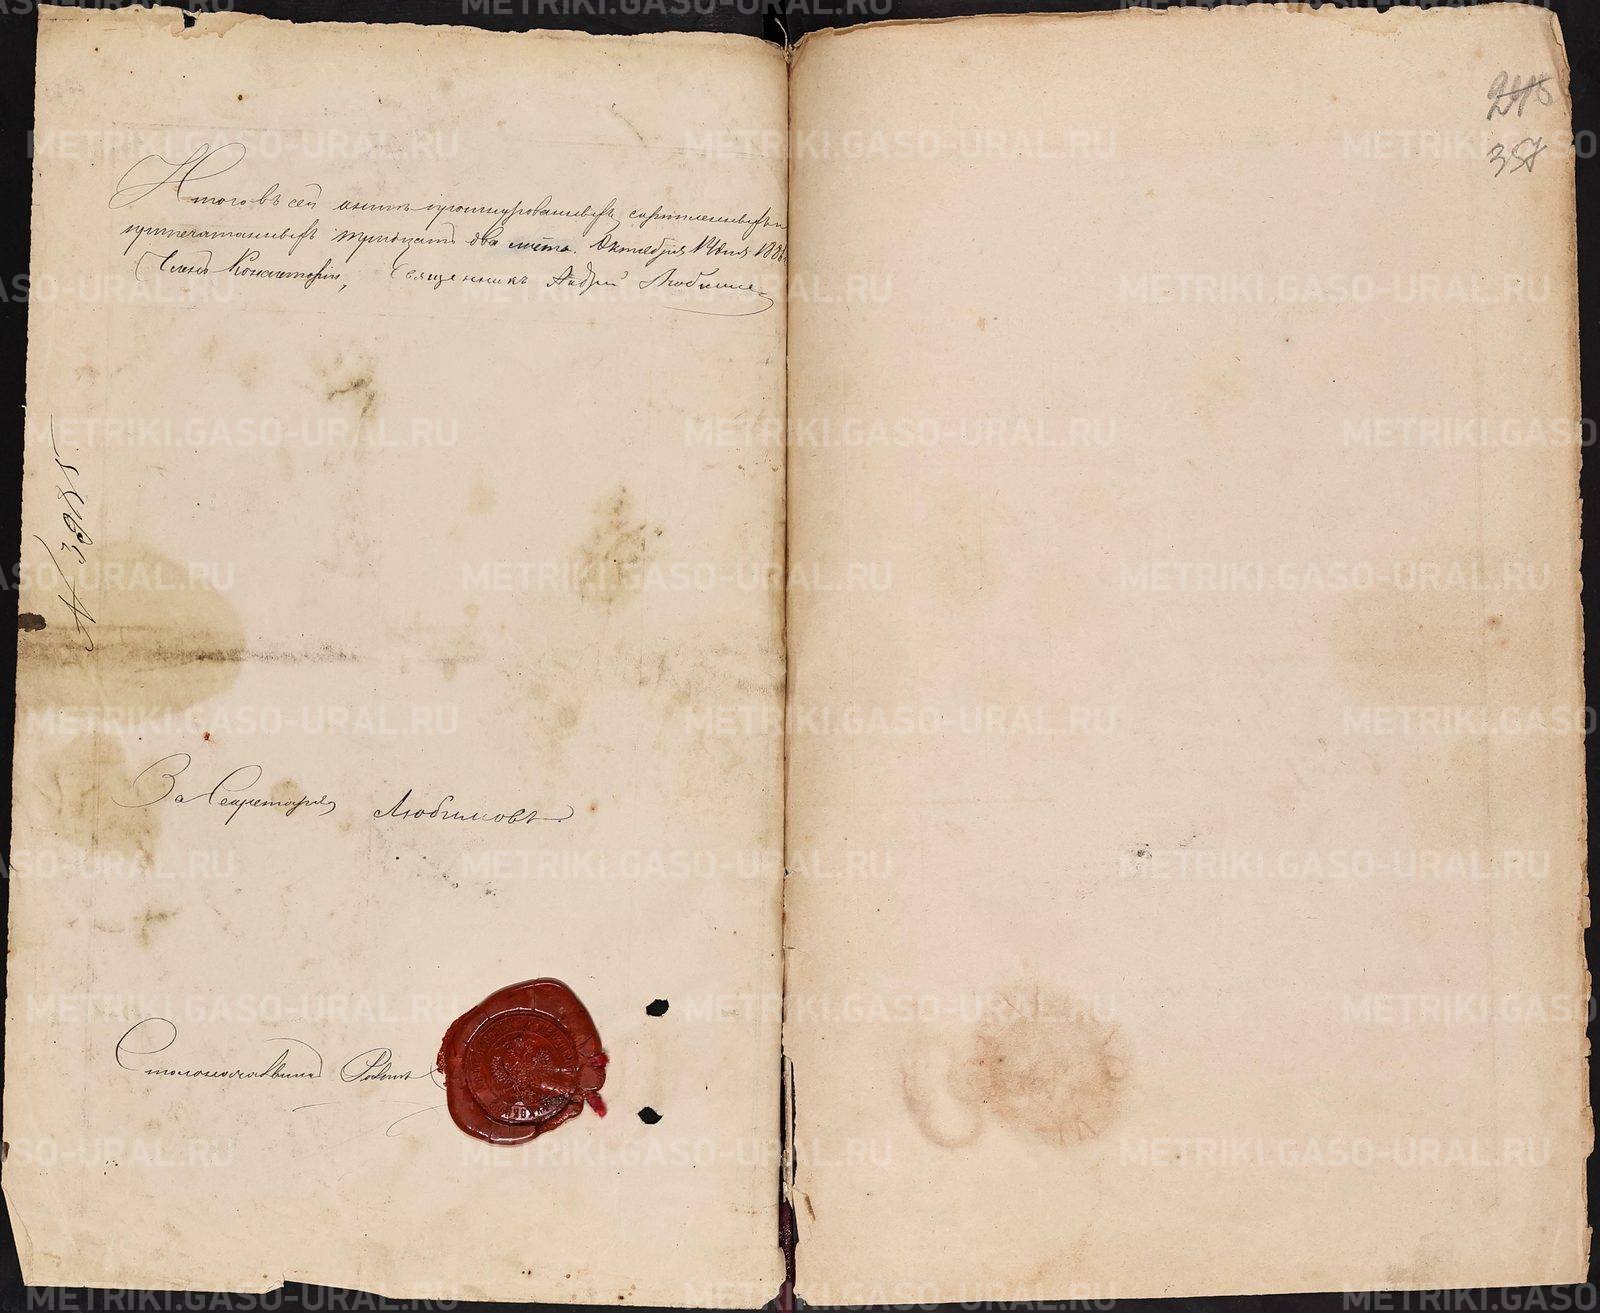 Итого въ сей книгѣ прошнурованныхъ, скрѣпленныхъ и
припечатанныхъ тридцать два листа. Октября 12 дня 188
Членъ Консисторіи, Священникъ Андрей Любимо
За Секретаря Любимовъ
Столоначальникъ
245
357
METRIKI.GASO-URAL.RU